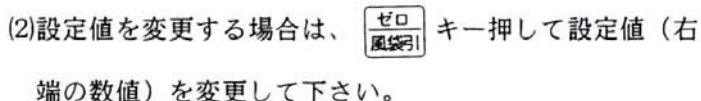 (2)設定値を変更する場合は、 ゼロ 風袋引 キー押して設定値（右
端の数値）を変更して下さい。